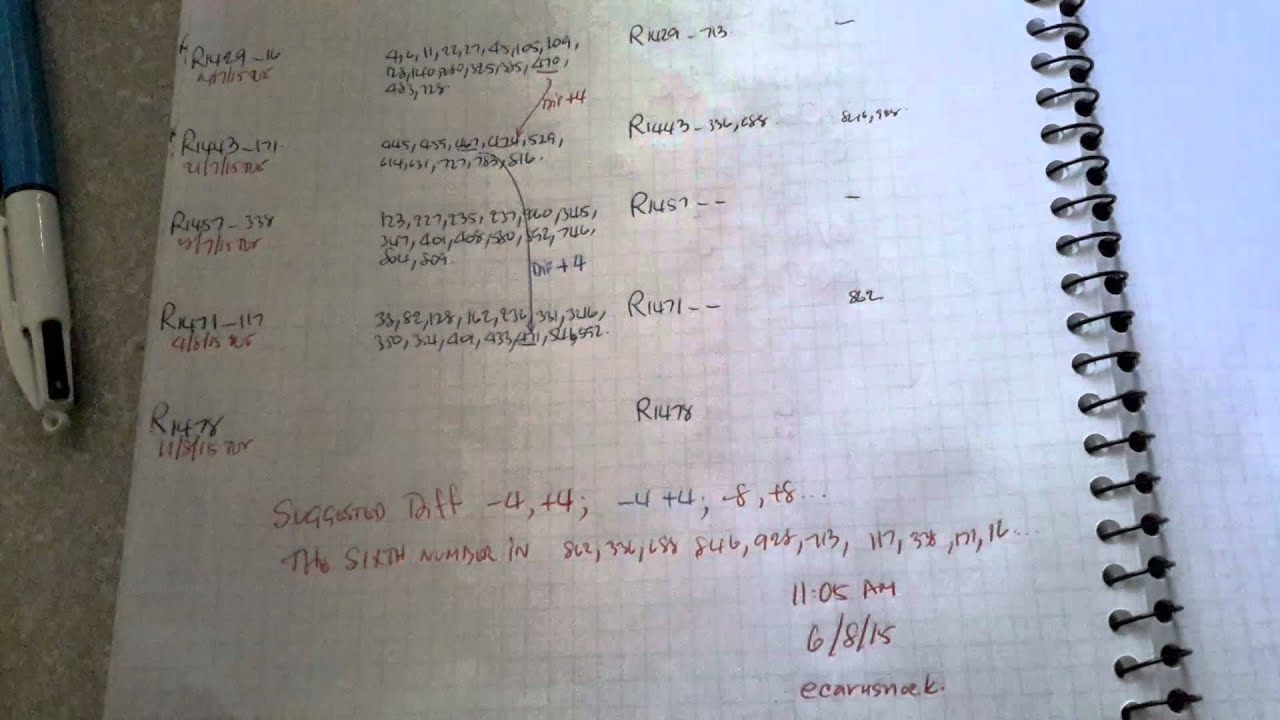 R1429-16
4,6,11,22,27,45,105,109,
R1429-713
-
470,
483,728
Diff +4
R1443-171
445,459,467,474,529,
R1443-336,688
21/7/15 TUE
614,631,727,783,816.
R1457-338
123,227,235,237,260,345,
R1457--
-
347,401,408,580,
746,
Diff +4
R1471-117
33,82,128,162,236,331,346,
R1471--
862
4/8/15 TUE
350,354,401,433,471,546,552.
R1478
R1478
11/8/15 TUE
SUGGESTED Diff -4,+4; -4 +4; -8,+8...
THE SIXTH NUMBER IN 862,336,688 846,928,713, 117,338,171,16...
11:05 AM
6/8/15
ecarusnoek.